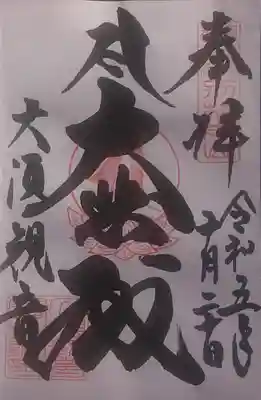 奉拝
令和五年
十月二十日
大悲殿
大須観音